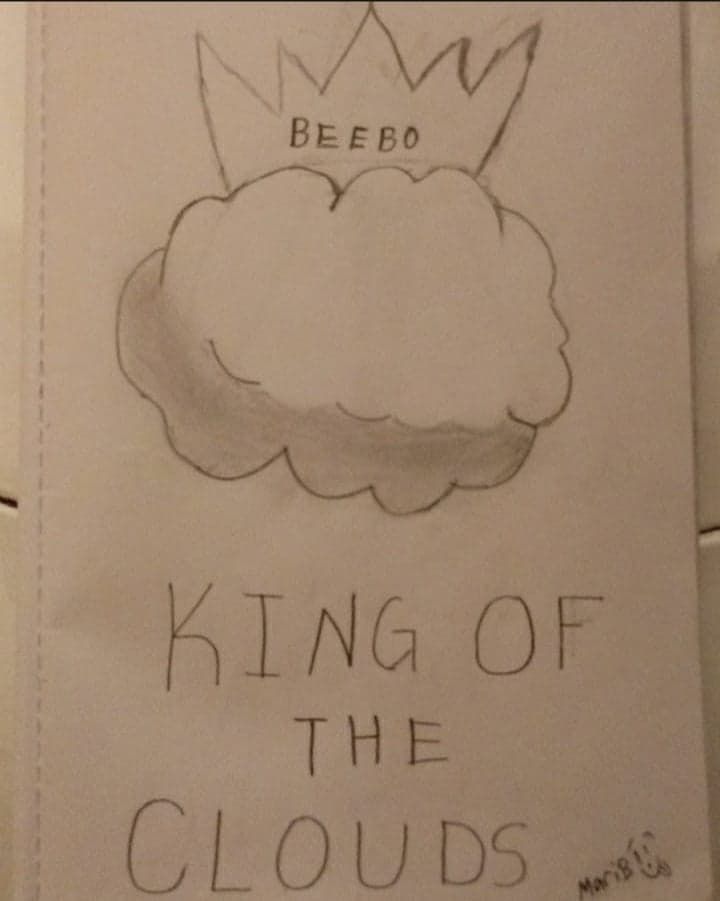 BEEBO
KING OF
THE
CLOUDS
MariB